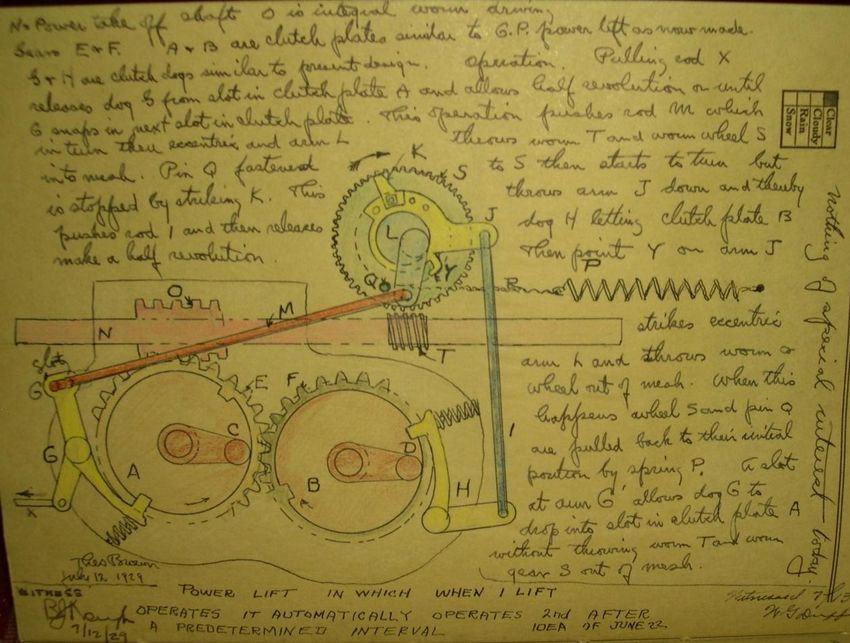 N = Power take off shaft O is integral worm driving
Gears E & F. A & B are clutch plates similar to G.P. power lift as now made.
G & H are clutch dogs similar to present design. Operation. Pulling rod X
releases dog G from slot in clutch plate A and allows half revolution or until
G snaps in next slot in clutch plate. This operation pushes rod M which
in turn then eccentric and arm L throws worm T and worm wheel S
into mesh. Pin Q fastened to S then starts to turn but
is stopped by striking K. This throws arm J down and thereby
pushes rod 1 and then releases dog H letting clutch plate B
make a half revolution. Then point Y on arm J
strikes eccentric
arm L and throws worm &
wheel out of mesh. When this
happens wheel S and pin Q
are pulled back to their initial
position by spring P. A slot
at arm G' allows dog G to
drop into slot in clutch plate A
without throwing worm T and worm
gear S out of mesh.
Clear
Cloudy
Rain
Snow
Nothing of special interest today.
K
S
J
L
Q
Y
R
P
O
M
N
T
Slot
G'
E
F
G
C
D
A
B
H
1
X
Theo Brown
July 12 1929
WITNESS
7/12/29
POWER LIFT IN WHICH WHEN 1 LIFT
OPERATES IT AUTOMATICALLY OPERATES 2nd AFTER
A PREDETERMINED INTERVAL IDEA OF JUNE 22
Witnessed